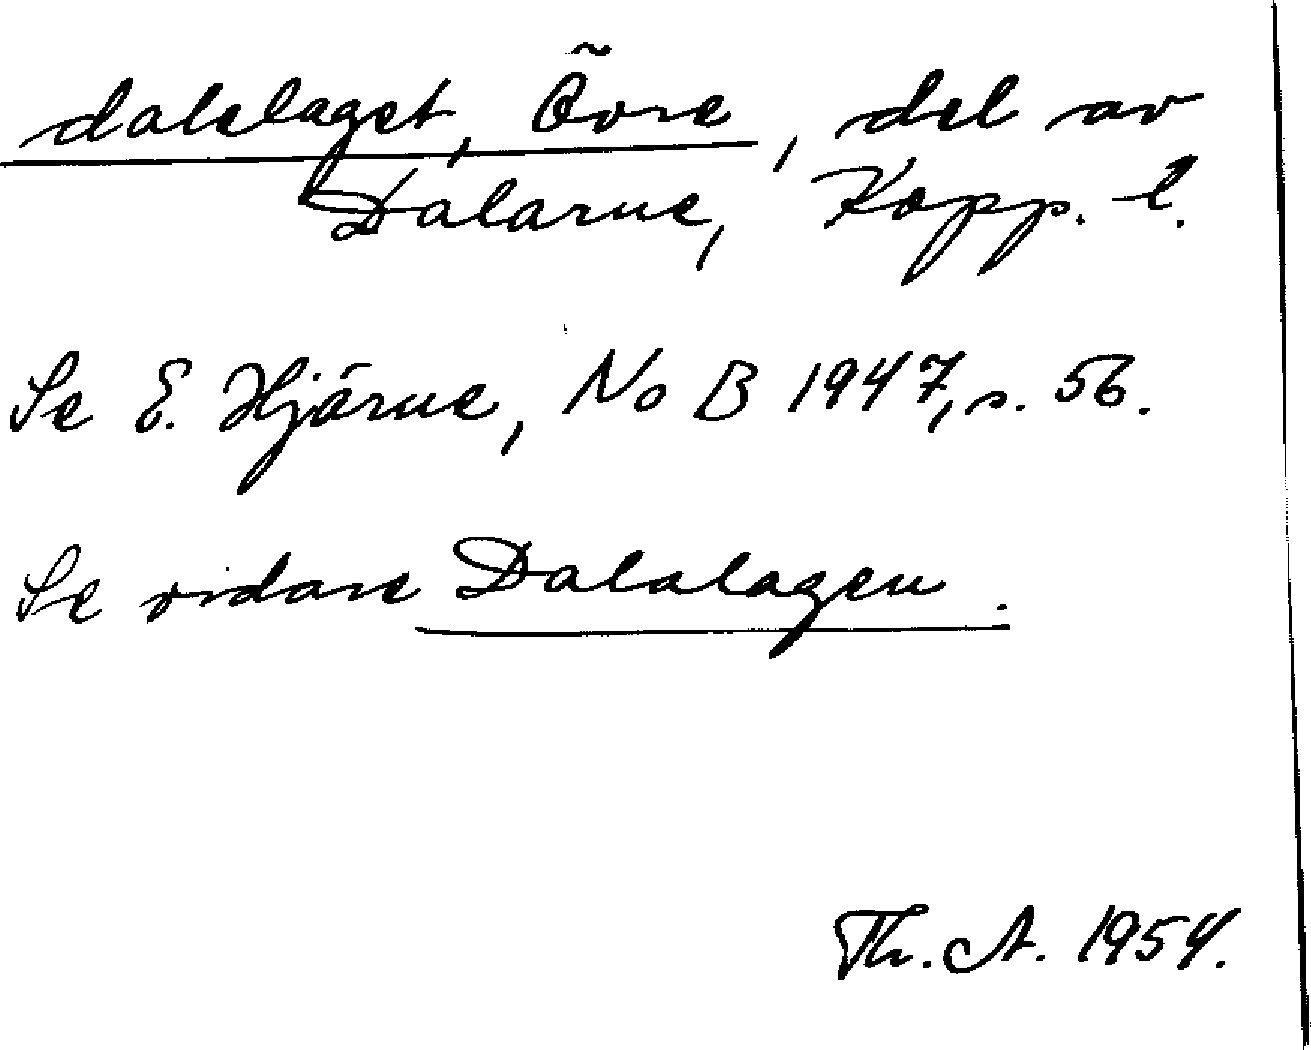 dalelaget, Övre, del av
Dalarne, Kopp. l.
Se E. Hjärne, No B 1947, s. 56.
Se vidare Dalalagen.
Th. A. 1954.